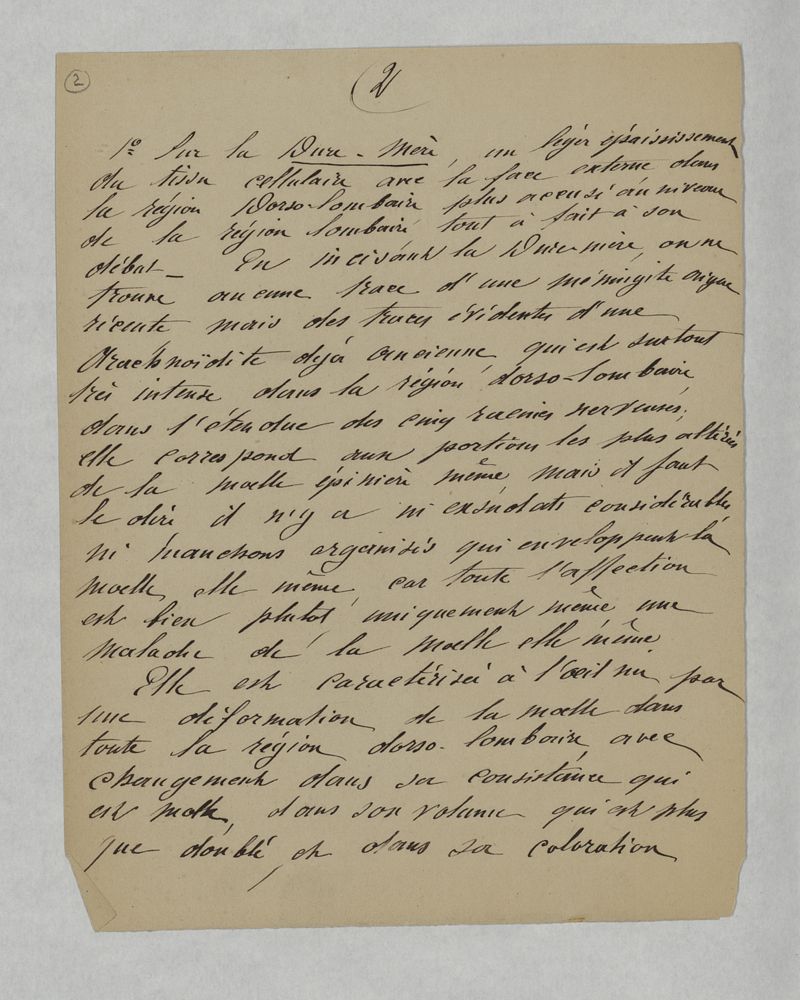 2
2
1º Sur la Dure-Mère, un léger épaississement
du tissu cellulaire avec la face externe dans
la région Dorso-lombaire plus accusé au niveau
de la région lombaire tout à fait à son
début _ En incisant la Dure-mère, on ne
trouve aucune trace d'une méningite aigue
récente mais des traces évidentes d'une
Arachnoïdite déjà ancienne, qui est surtout
très intense dans la région dorso-lombaire,
dans l'étendue des cinq racines nerveuses;
elle correspond aux portions les plus altérées
de la moelle épinière même, mais il faut
le dire il n'y a ni exsudats considérables
ni manchons organisés qui enveloppent la
moelle elle même, car toute l'affection
est bien plutôt, uniquement même une
maladie de la moelle elle même.
Elle est caractérisée à l'œil nu, par
une déformation de la moelle dans
toute la région dorso-lombaire, avec
changement dans sa consistance qui
est molle, dans son volume qui est plus
que doublé, et dans sa coloration